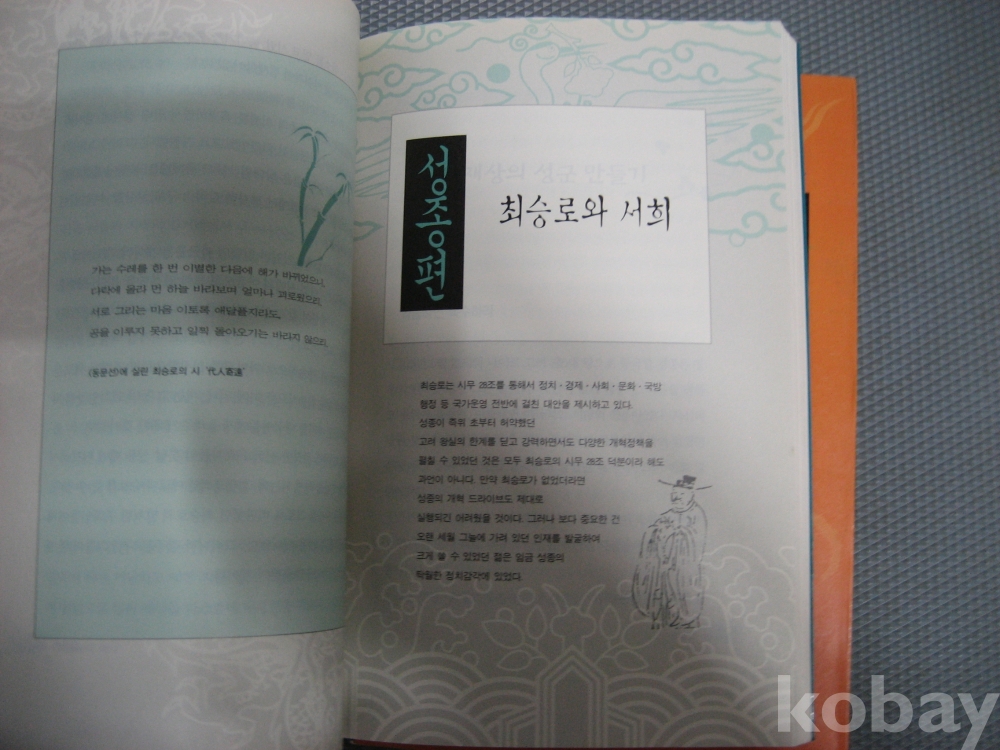 가는 수레를 한 번 이별한 다음에 해가 바뀌었으니,
다락에 올라 먼 하늘 바라보며 얼마나 괴로웠으랴.
서로 그리는 마음 이토록 애달플지라도,
공을 이루지 못하고 일찍 돌아오기는 바라지 않으리.
〈동문선〉에 실린 최승로의 시 '代人寄遠'
성종편
최승로와 서희
최승로는 시무 28조를 통해서 정치·경제·사회·문화·국방
행정 등 국가운영 전반에 걸친 대안을 제시하고 있다.
성종이 즉위 초부터 허약했던
고려 왕실의 한계를 딛고 강력하면서도 다양한 개혁정책을
펼칠 수 있었던 것은 모두 최승로의 시무 28조 덕분이라 해도
과언이 아니다. 만약 최승로가 없었더라면
성종의 개혁 드라이브도 제대로
실행되긴 어려웠을 것이다. 그러나 보다 중요한 건
오랜 세월 그늘에 가려 있던 인재를 발굴하여
크게 쓸 수 있었던 젊은 임금 성종의
탁월한 정치감각에 있었다.
kobay